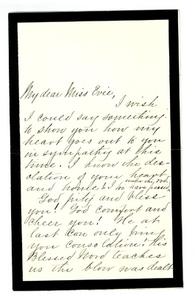 My dear Miss Evie,
I wish
I could say something
to show you how my
heart goes out to you
in sympathy at this
time. I know the des-
olation of your heart
and home &
God pity and bless
you! God comfort and
cheer you! He at
last can only bring
you consolation: his
Blessed Word teaches
us the blow was dealt